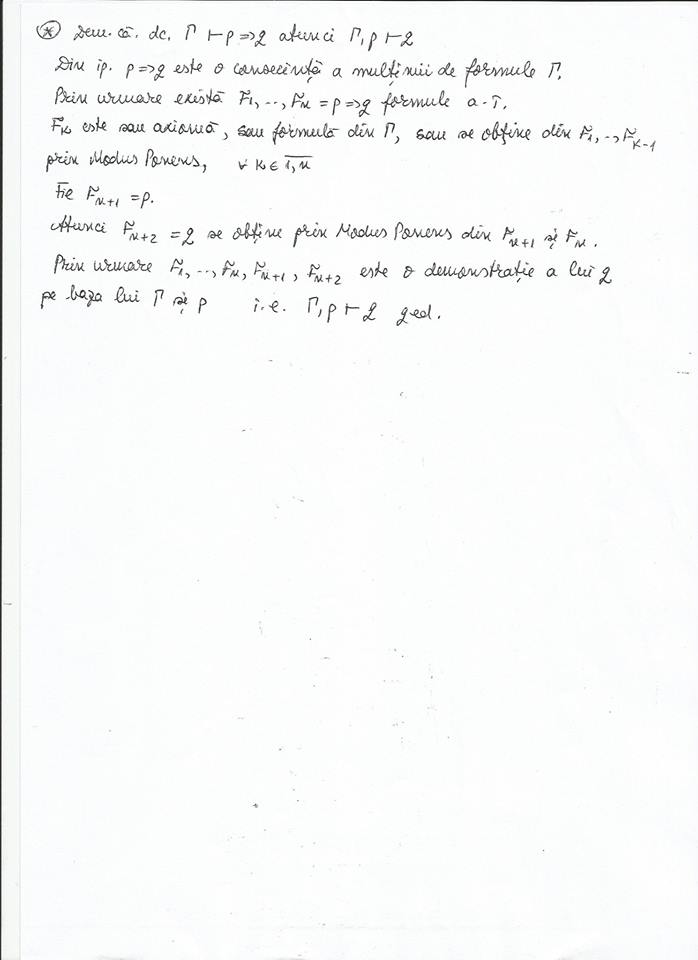 * Dem. că. dc. Γ ⊢ p => q atunci Γ, p ⊢ q
Din ip. p => q este o consecință a mulțimii de formule Γ.
Prin urmare există F₁, .., Fₙ = p => q formule a. î.
Fₖ este sau axiomă, sau formulă din Γ, sau se obține din F₁, .., Fₖ₋₁
prin Modus Ponens, ∀ k ∈ 1,n
Fie Fₙ₊₁ = p.
Atunci Fₙ₊₂ = q se obține prin Modus Ponens din Fₙ₊₁ și Fₙ.
Prin urmare F₁, .., Fₙ, Fₙ₊₁, Fₙ₊₂ este o demonstrație a lui q
pe baza lui Γ și p i.e. Γ, p ⊢ q qed.